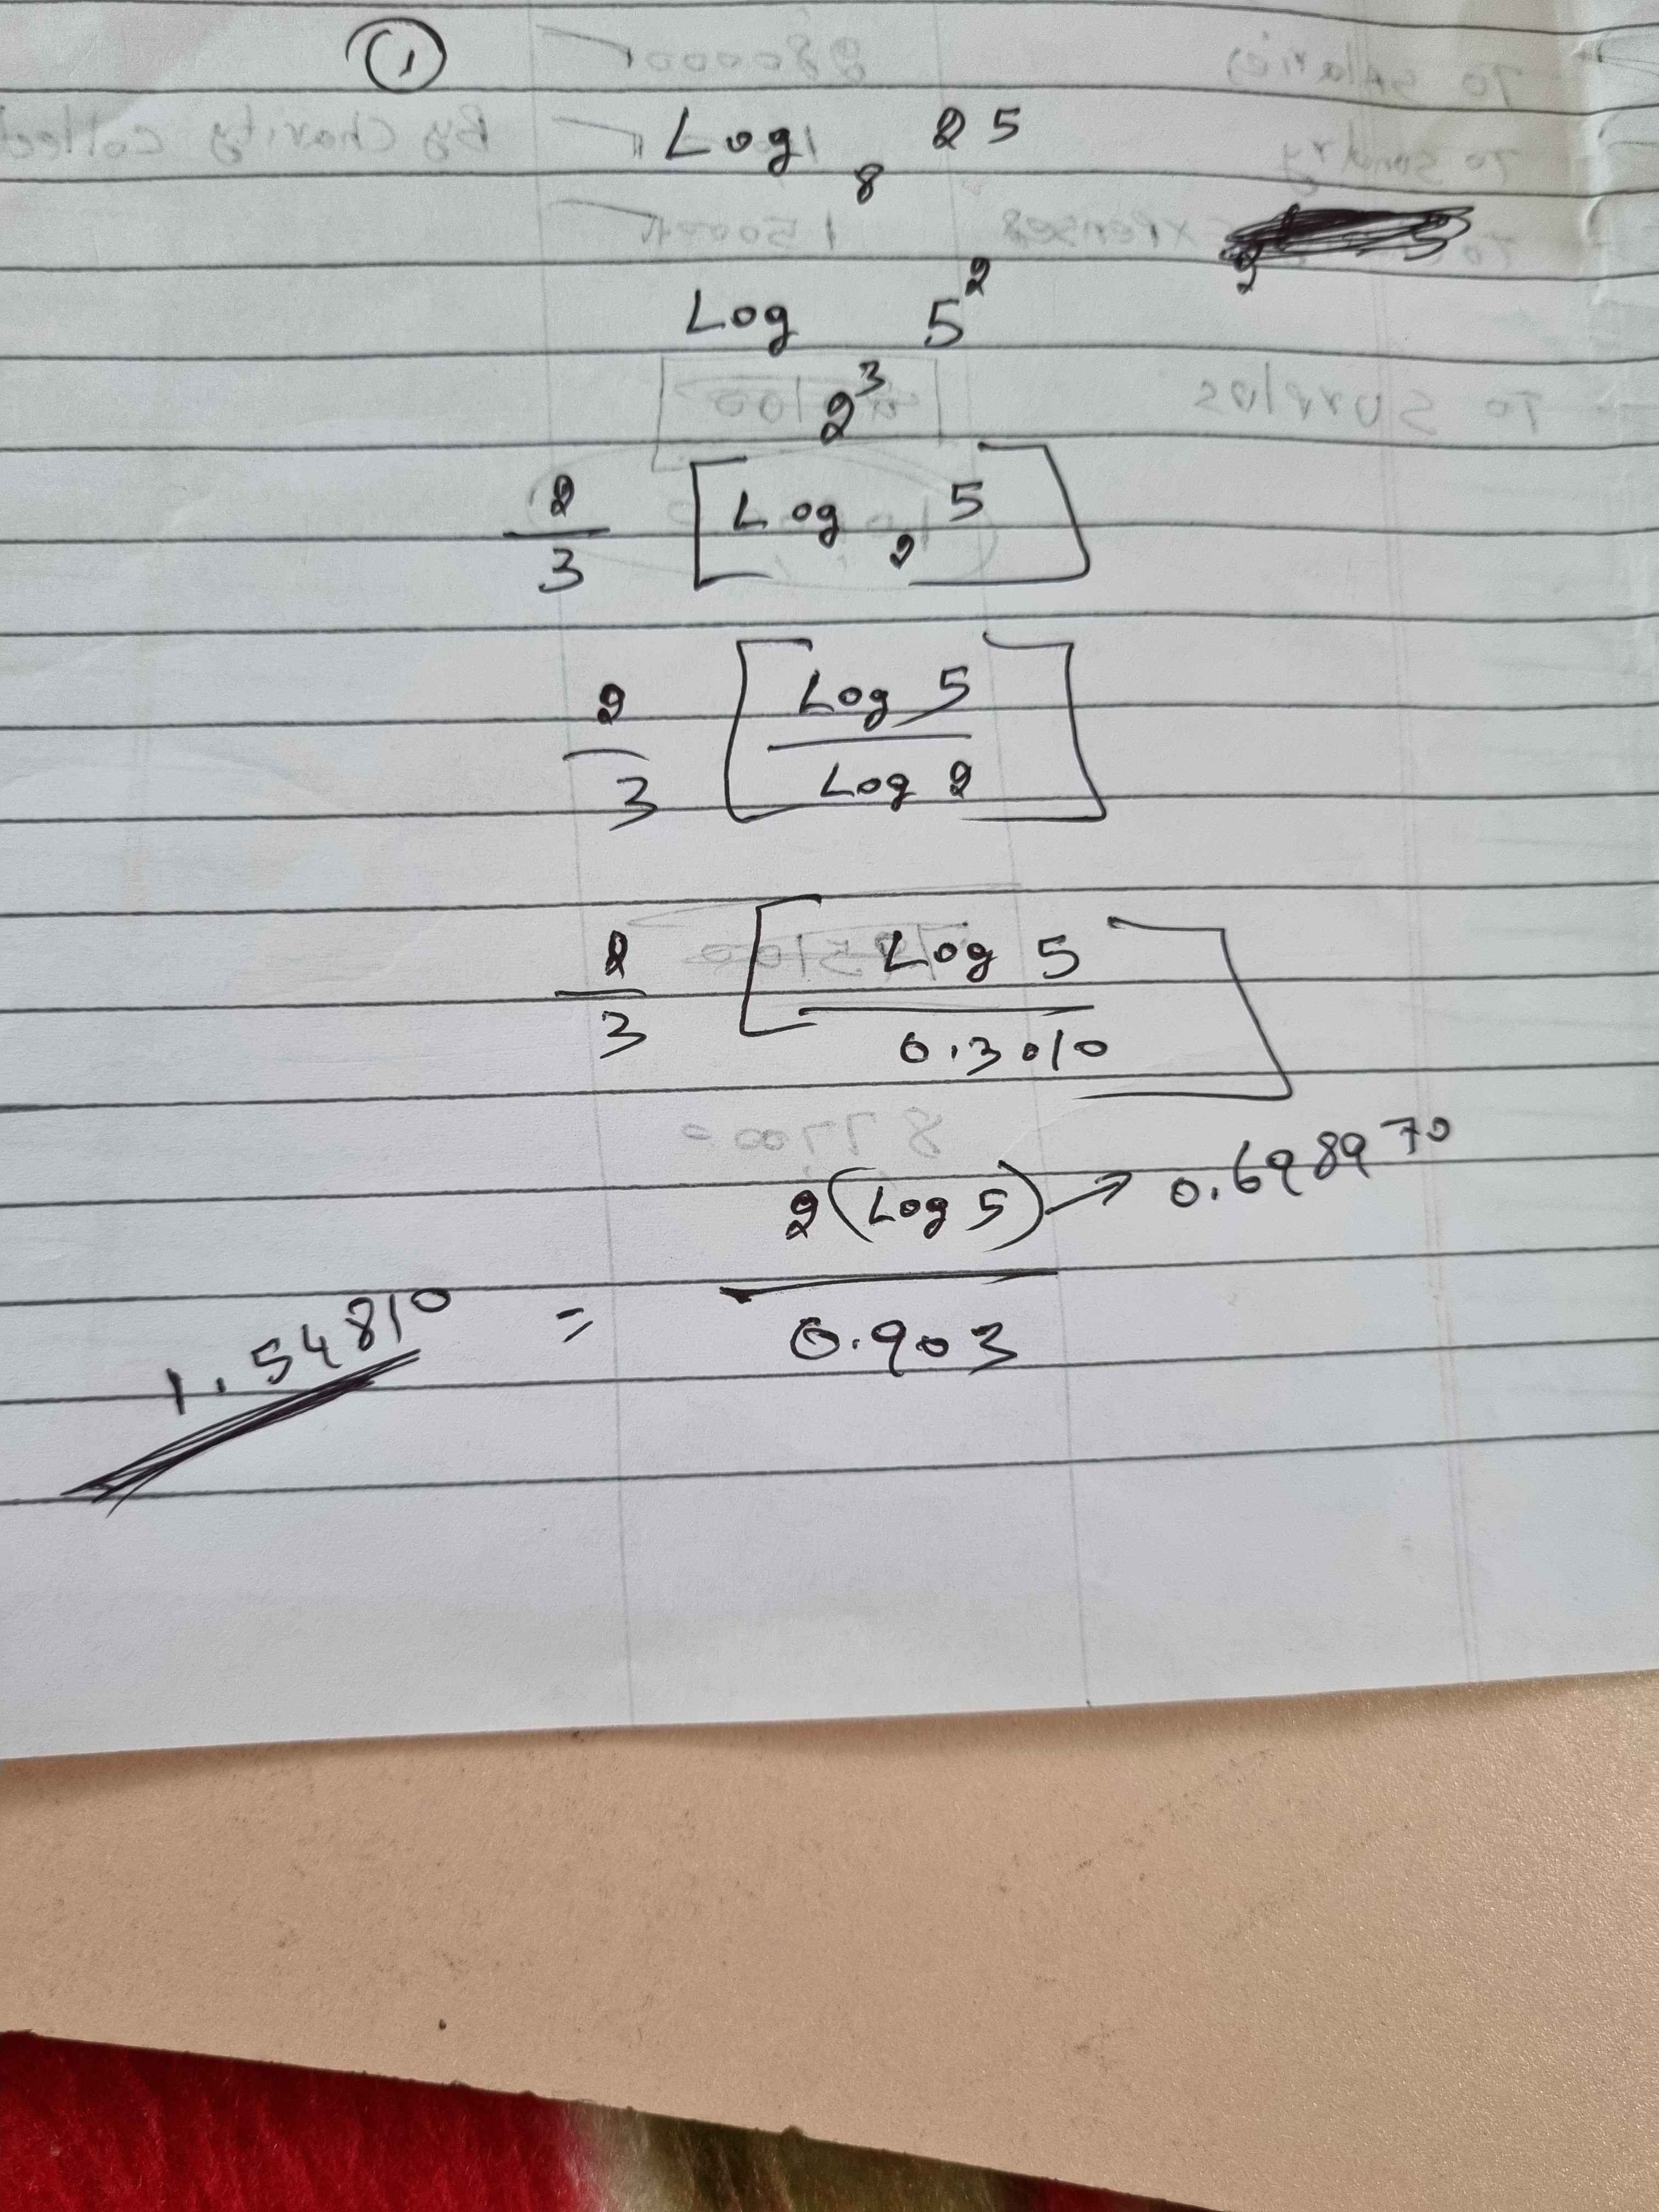 1
Log₈ 25
Log 5²
2³
2/3 [Log₂ 5]
2/3 [Log 5 / Log 2]
2/3 [Log 5 / 0.3010]
2(Log 5) → 0.698970
1.54810 = ———
0.903